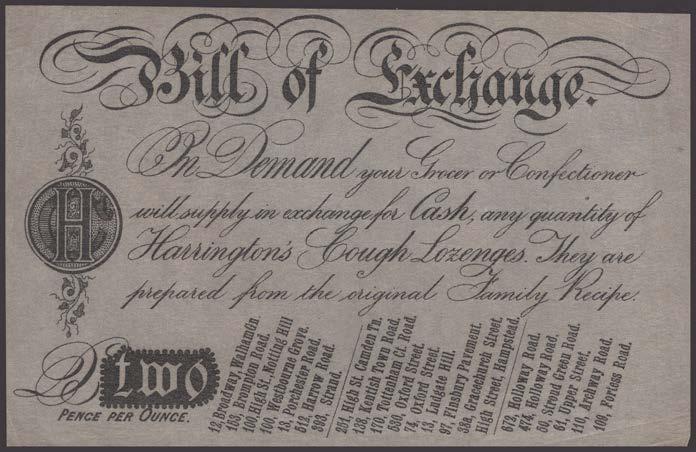 Bill of Exchange.
On Demand your Grocer or Confectioner
will supply in exchange for Cash, any quantity of
Harrington's Cough Lozenges. They are
prepared from the original Family Recipe.
H
two
PENCE PER OUNCE.
12, Broadway, Walham Gn.
153, Brompton Road.
100, High St. Notting Hill
100, Westbourne Grove.
13, Porchester Road.
512, Harrow Road.
393, Strand.
251, High St. Camden Tn.
138, Kentish Town Road.
170, Tottenham Ct. Road.
530, Oxford Street.
74, Oxford Street.
13, Ludgate Hill.
97, Finsbury Pavement.
38a, Gracechurch Street.
High Street, Hampstead.
673, Holloway Road.
474, Holloway Road.
50, Stroud Green Road.
61, Upper Street.
110, Archway Road.
109, Fortess Road.